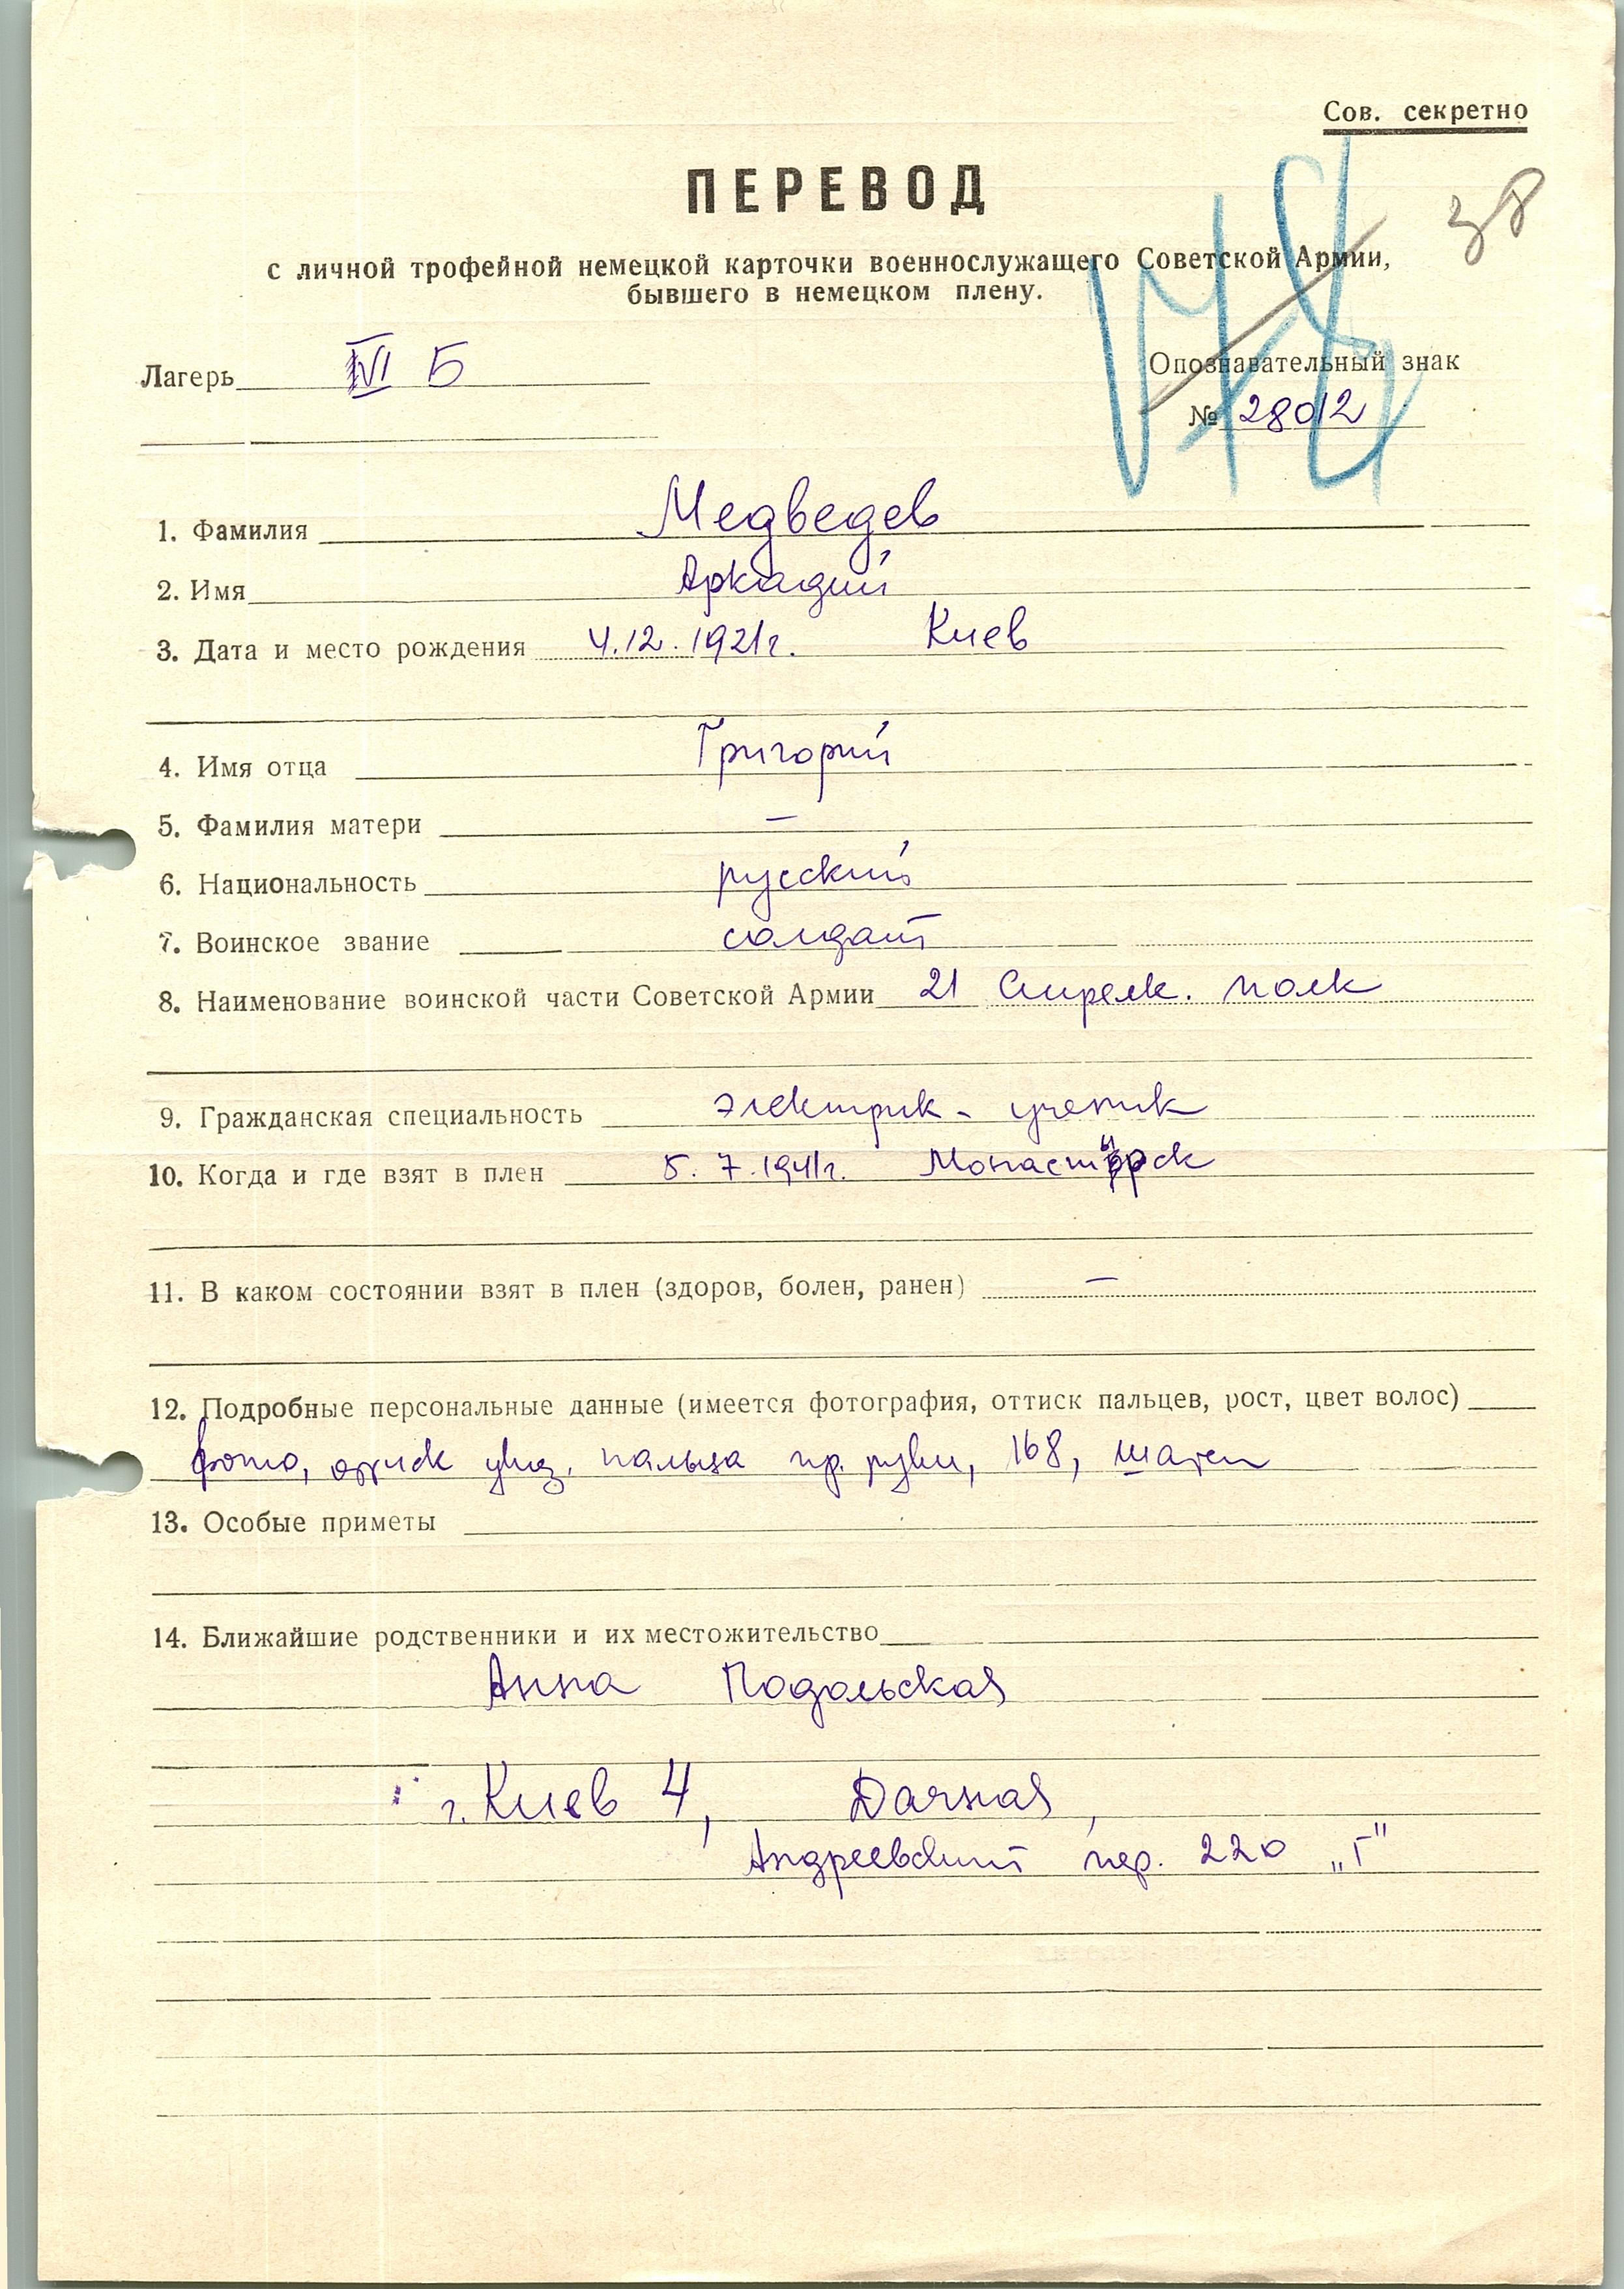 Сов. секретно
38
ПЕРЕВОД
с личной трофейной немецкой карточки военнослужащего Советской Армии,
бывшего в немецком плену.
Лагерь IVI Б
Опознавательный знак
№ 28012
1. Фамилия Медведев
2. Имя Аркадий
3. Дата и место рождения 4.12.1921г. Киев
4. Имя отца Григорий
5. Фамилия матери —
6. Национальность русский
7. Воинское звание солдат
8. Наименование воинской части Советской Армии 21 Стрелк. полк
9. Гражданская специальность электрик - ученик
10. Когда и где взят в плен 5.7.1941г. Монастырск
11. В каком состоянии взят в плен (здоров, болен, ранен) —
12. Подробные персональные данные (имеется фотография, оттиск пальцев, рост, цвет волос)
фото, оттиск указ. пальца пр. руки, 168, шатен
13. Особые приметы
14. Ближайшие родственники и их местожительство
Анна Подольская
г. Киев 4, Дачная,
Андреевский пер. 220 „Г"